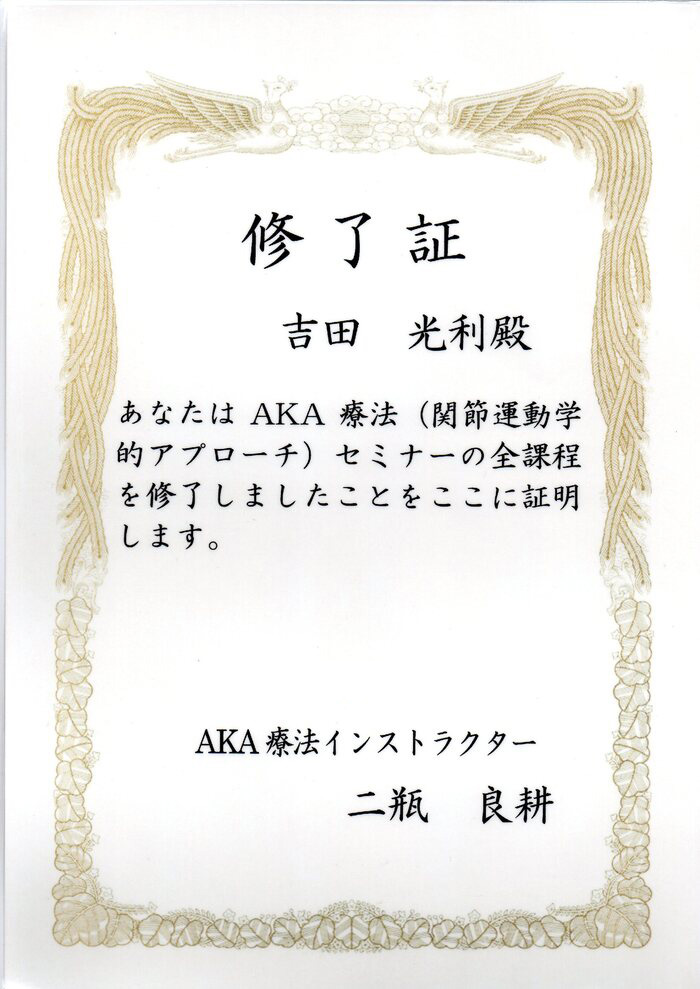 修了証
吉田 光利殿
あなたは AKA 療法（関節運動学
的アプローチ）セミナーの全課程
を修了しましたことをここに証明
します。
AKA 療法インストラクター
二瓶 良耕